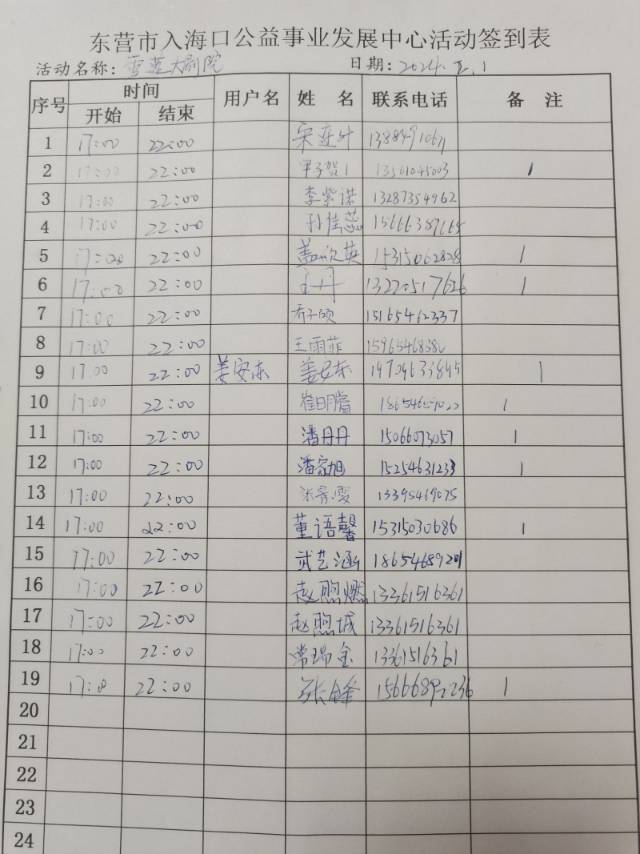 东营市入海口公益事业发展中心活动签到表
活动名称: 雪莲大剧院 日期: 2024.
序号 时间 用户名 姓名 联系电话 备注
开始 结束
1 17:00 22:00
2 17:00 22:00 13561045003 1
3 17:00 22:00 李紫诺 13287354962
4 17:00 22:00 孙佳蕊
5 17:00 22:00 盖欣英 15315062828 1
6 17:00 22:00 王丹 13220517626 1
7 17:00 22:00 乔子硕 15165462337
8 17:00 22:00 王雨菲
9 17:00 22:00 姜安东 姜安东 1
10 17:00 22:00 1
11 17:00 22:00 潘丹丹 15066073057 1
12 17:00 22:00 潘家旭 15254631233 1
13 17:00 22:00 13395469075
14 17:00 22:00 董语馨 15315030686 1
15 17:00 22:00 武艺涵 18654689201
16 17:00 22:00 赵煦燃 13361516361
17 17:00 22:00 赵煦城 13361516361
18 17:00 22:00 常瑞金 13361516361
19 17:0 22:00 张峰 1
20
21
22
23
24